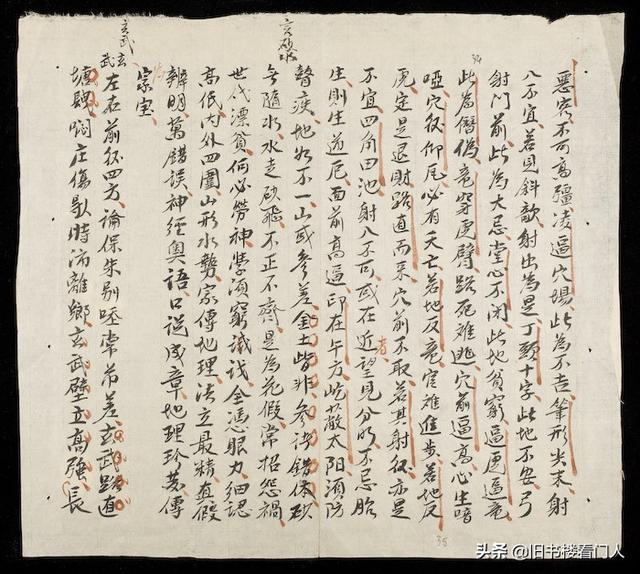 惡容不可高彊凌逼穴場此為不吉筆形尖来射
八不宜若見斜歆射出為是丁頭十字此地不安弓
射门前此為大忌堂心不闭此地貧窮逼虎逼竜
此為僭偽竜穿虎臂路死难逃穴前逼高心生喑
啞穴後仰尾必有夭亡若地反竜官难進步若地反
虎定是退財路直而来穴前不取若其射後亦是
不宜四角田池射八不可或在近者望見分明不忌胎
生則生道厄面前高逼印在午方屹蔽太阳須防
瞽疾地出不一山或參差金土皆非參決錯体砂
言砂水
無隨水水走砂飛不正不齊是為花假常招怨禍
世代漂貧何必勞神學須窮識浅全憑眼力細認
高低内外四圍山形水勢家傳地理法立最精真假
辨明萬錯誤神經奥語口说成章地理珍裘傳
為家宝
玄武
玄武左右前後四方論保朱别呼常吊差玄武路直
塘悶庄傷時沛離鄉玄武壁立高強長
34
35
头条 @旧书楼看门人